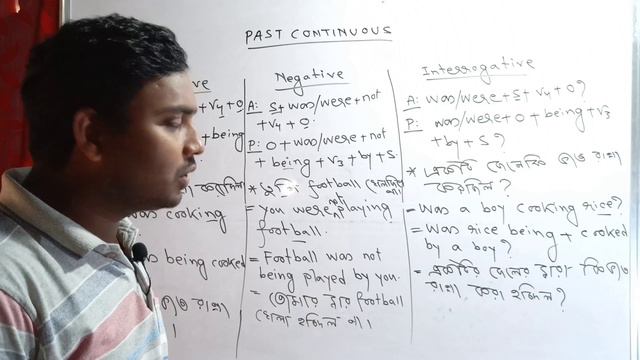 PAST CONTINUOUS
ve
+ V4 + O
+ being
was cooking
was being cooked
Negative
A: S + was/were + not
+ V4 + O
P: O + was/were + not
+ being + V3 + by + S
* তুমি football খেলছিলে না।
= you were not playing
football
= Football was not
being played by you.
= তোমার দ্বারা football
খেলা হচ্ছিল না।
Interrogative
A: was/were + S + V4 + O?
P: was/were + O + being + V3
+ by + S?
* একটি ছেলে কি ভাত রান্না
করছিল?
= Was a boy cooking rice?
= Was rice being + cooked
by a boy?
= একটি ছেলের দ্বারা কি ভাত
রান্না করা হচ্ছিল?